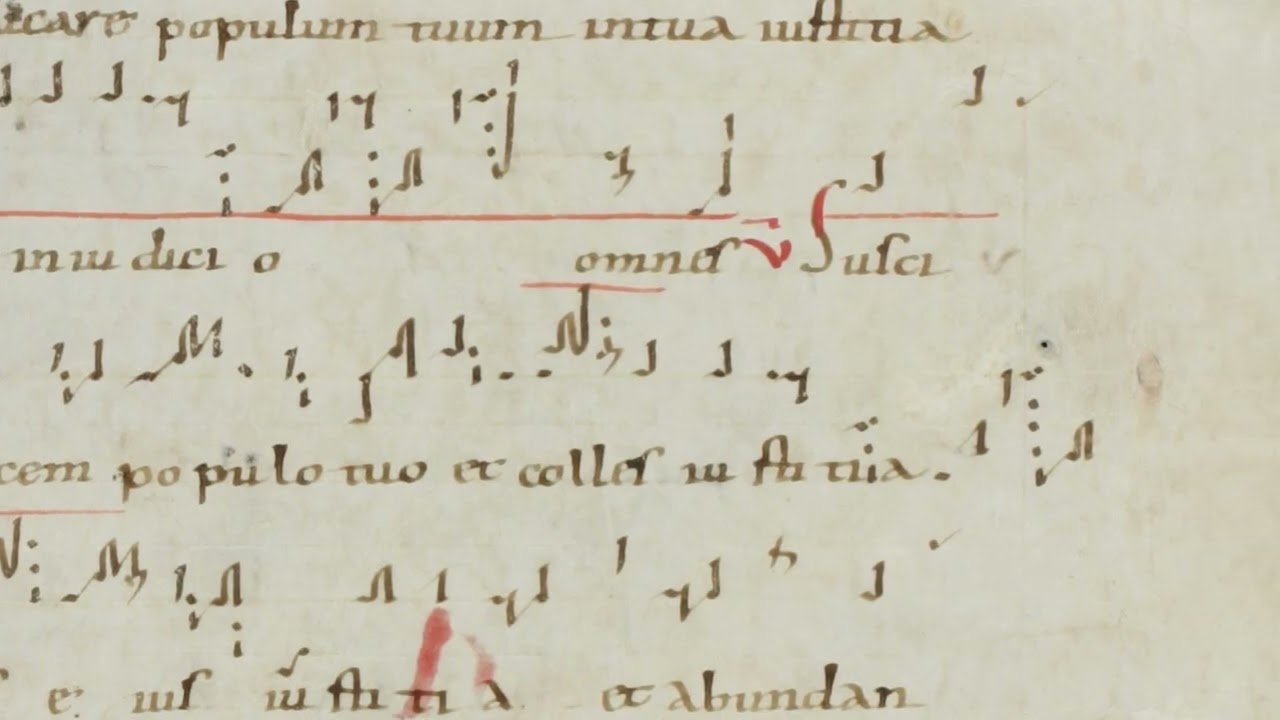 icare populum tuum intua iustitia
iniu dici o omnes ℣ Susci
cem po pu lo tuo et colles iu sti tiia.
e ius iu sti ti a et abundan